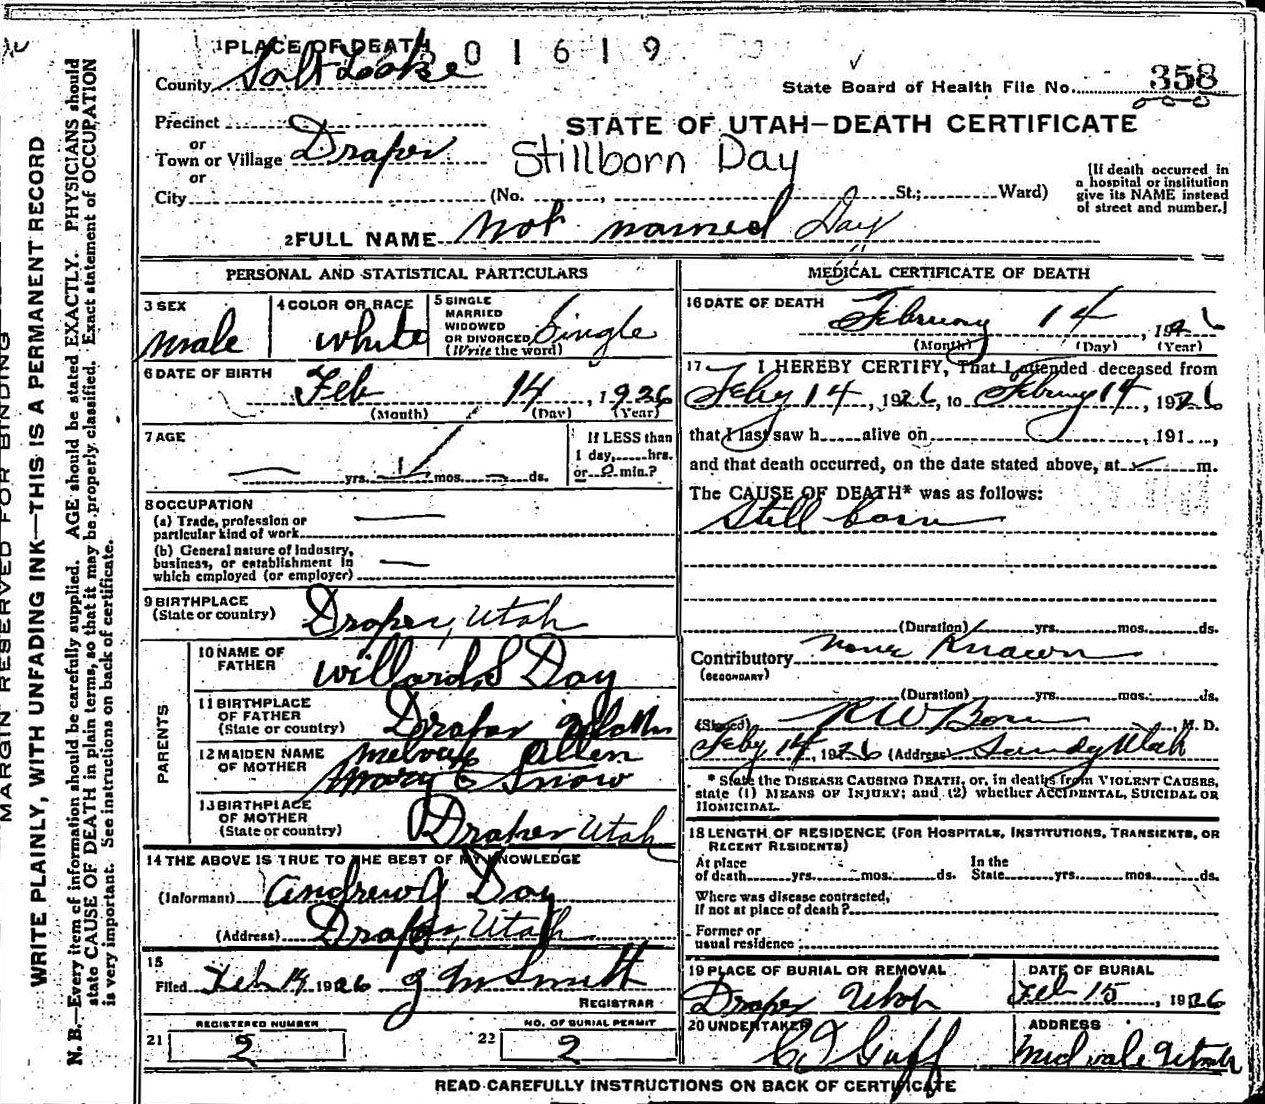 MARGIN RESERVED FOR BINDING
WRITE PLAINLY, WITH UNFADING INK—THIS IS A PERMANENT RECORD
N. B.—Every item of information should be carefully supplied. AGE should be stated EXACTLY. PHYSICIANS should
state CAUSE OF DEATH in plain terms, so that it may be properly classified. Exact statement of OCCUPATION
is very important. See instructions on back of certificate.
1 PLACE OF DEATH 0 1 6 1 9
County Salt Lake
State Board of Health File No. 358
Precinct
or
Town or Village Draper
or
City
STATE OF UTAH—DEATH CERTIFICATE
Stillborn Day
(No. , St.; Ward)
[If death occurred in
a hospital or institution
give its NAME instead
of street and number.]
2 FULL NAME Not named Day
PERSONAL AND STATISTICAL PARTICULARS
3 SEX
male
4 COLOR OR RACE
white
5 SINGLE
MARRIED
WIDOWED
OR DIVORCED
(Write the word)
Single
6 DATE OF BIRTH
Feb 14, 1926
(Month) (Day) (Year)
7 AGE
yrs. mos. ds.
If LESS than
1 day, hrs.
or 0 min.?
8 OCCUPATION
(a) Trade, profession or
particular kind of work
(b) General nature of Industry,
business, or establishment in
which employed (or employer)
9 BIRTHPLACE
(State or country)
Draper, Utah
PARENTS
10 NAME OF
FATHER
Willard S Day
11 BIRTHPLACE
OF FATHER
(State or country)
Draper Utah
12 MAIDEN NAME
OF MOTHER
Allen
Mary E Snow
13 BIRTHPLACE
OF MOTHER
(State or country)
Draper Utah
14 THE ABOVE IS TRUE TO THE BEST OF MY KNOWLEDGE
(Informant) Andrew J Day
(Address) Draper, Utah
15
Filed Feb 14 1926 J M Smith
REGISTRAR
21 REGISTERED NUMBER
2
22 NO. OF BURIAL PERMIT
2
MEDICAL CERTIFICATE OF DEATH
16 DATE OF DEATH
February 14, 1926
(Month) (Day) (Year)
17 I HEREBY CERTIFY, That I attended deceased from
Feby 14, 1926, to February 14, 1926
that I last saw h alive on , 191 ,
and that death occurred, on the date stated above, at m.
The CAUSE OF DEATH* was as follows:
Still born
(Duration) yrs. mos. ds.
Contributory none Known
(SECONDARY)
(Duration) yrs. mos. ds.
(Signed) R W M. D.
Feby 14, 1926 (Address) Sandy Utah
* State the DISEASE CAUSING DEATH, or, in deaths from VIOLENT CAUSES,
state (1) MEANS OF INJURY; and (2) whether ACCIDENTAL, SUICIDAL OR
HOMICIDAL.
18 LENGTH OF RESIDENCE (FOR HOSPITALS, INSTITUTIONS, TRANSIENTS, OR
RECENT RESIDENTS)
At place
of death yrs. mos. ds.
In the
State yrs. mos. ds.
Where was disease contracted,
If not at place of death?
Former or
usual residence
19 PLACE OF BURIAL OR REMOVAL
Draper Utah
DATE OF BURIAL
Feb 15, 1926
20 UNDERTAKER
ADDRESS
Midvale Utah
READ CAREFULLY INSTRUCTIONS ON BACK OF CERTIFICATE